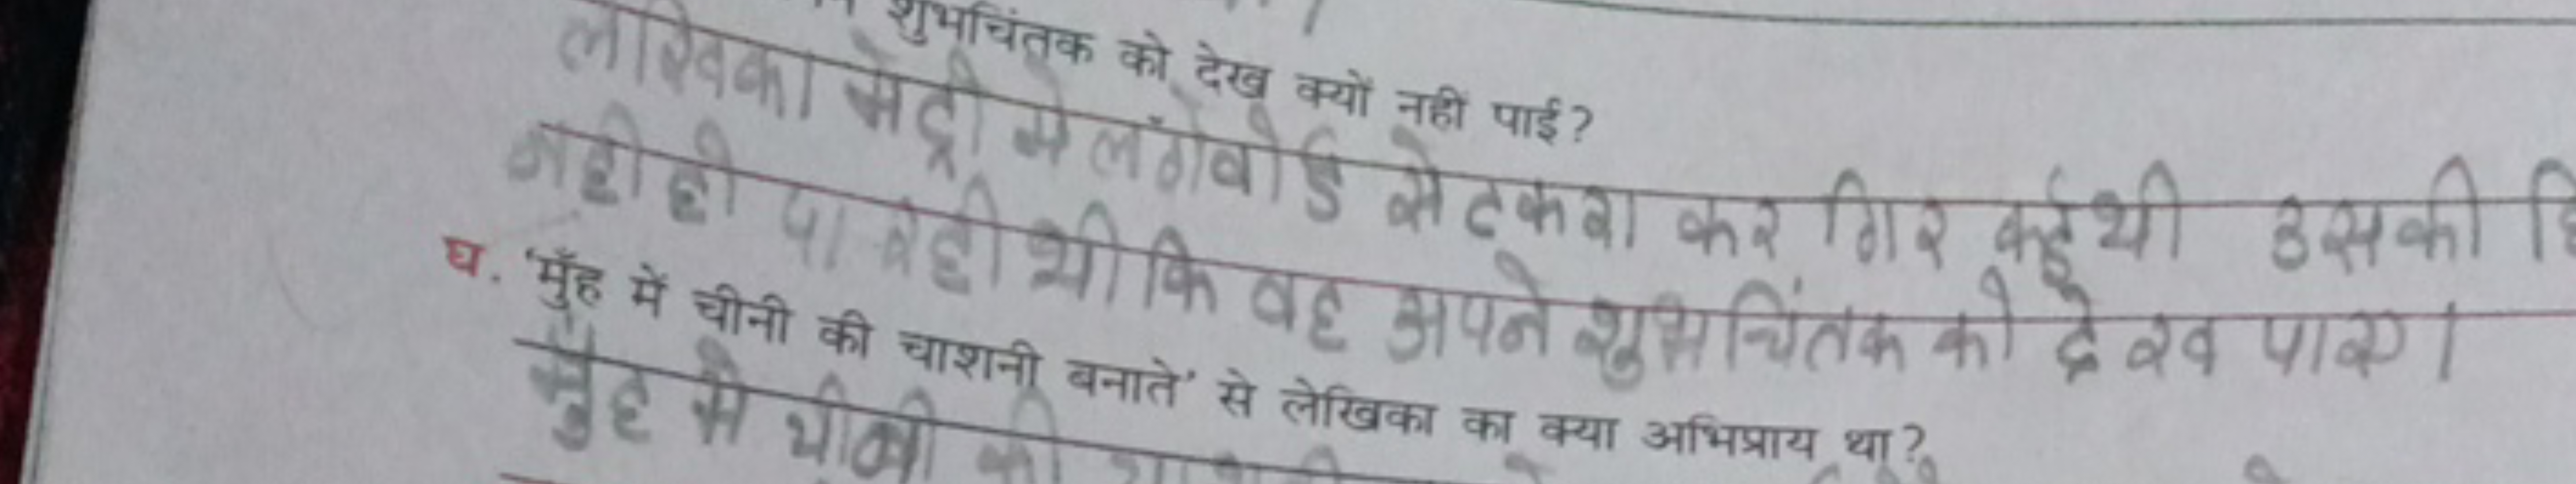 शुभचिंतक को देख क्यों नहीं पाई?
लेखिका मेट्रो मे लगे बोर्ड से टकरा कर गिर कई थी उसकी
नही हो पा रही थी कि वह अपने शुभचिंतक को देख पाए।
घ. ‘मुँह में चीनी की चाशनी बनाते’ से लेखिका का क्या अभिप्राय था?
मुँह मे चीनी की